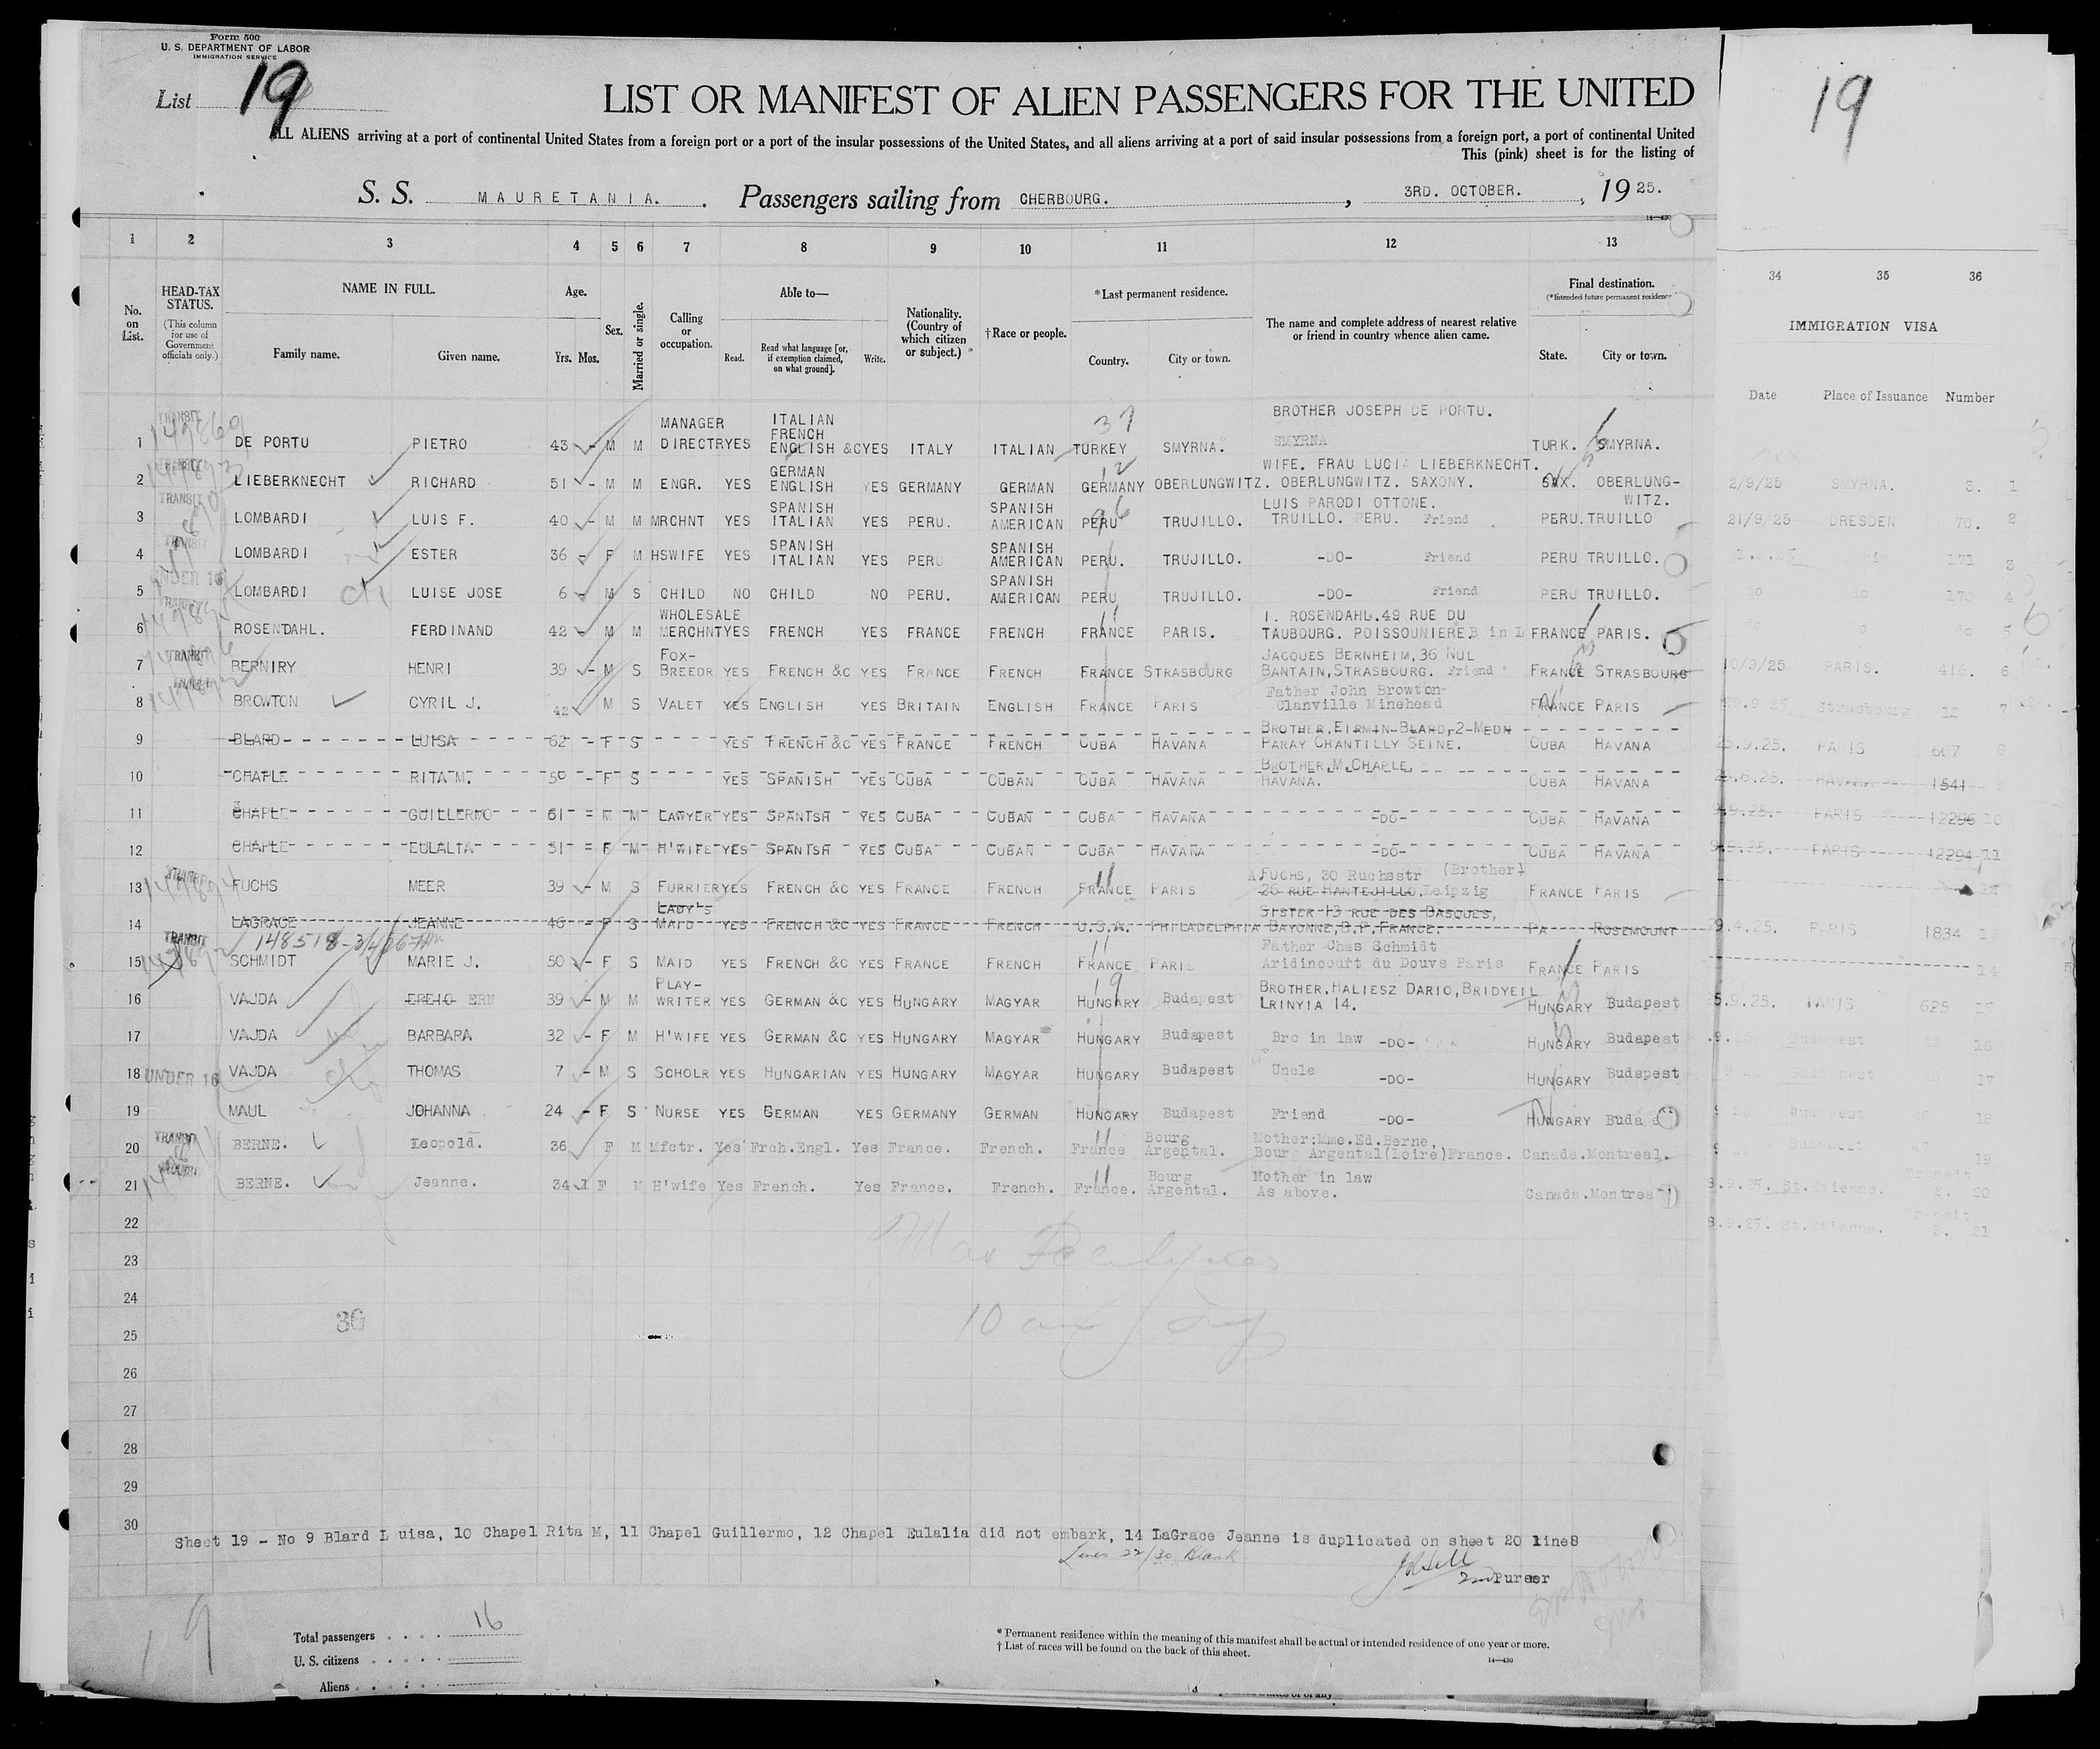 Form 500
U. S. DEPARTMENT OF LABOR
IMMIGRATION SERVICE
List 19
LIST OR MANIFEST OF ALIEN PASSENGERS FOR THE UNITED
ALL ALIENS arriving at a port of continental United States from a foreign port or a port of the insular possessions of the United States, and all aliens arriving at a port of said insular possessions from a foreign port, a port of continental United
This (pink) sheet is for the listing of
S. S. MAURETANIA. Passengers sailing from CHERBOURG. , 3RD. OCTOBER. , 19 25.
19
1 2 3 4 5 6 7 8 9 10 11 12 13 34 35 36
No. on List.
HEAD-TAX STATUS.
(This column for use of Government officials only.)
NAME IN FULL.
Family name. Given name.
Age.
Yrs. Mos.
Sex.
Married or single.
Calling or occupation.
Able to—
Read. Read what language [or, if exemption claimed, on what ground]. Write.
Nationality. (Country of which citizen or subject.)
†Race or people.
*Last permanent residence.
Country. City or town.
The name and complete address of nearest relative or friend in country whence alien came.
Final destination.
(*Intended future permanent residence
State. City or town.
IMMIGRATION VISA
Date Place of Issuance Number
1 TRANSIT DE PORTU PIETRO 43 - M M MANAGER DIRECTR YES ITALIAN FRENCH ENGLISH &C YES ITALY ITALIAN TURKEY SMYRNA. BROTHER JOSEPH DE PORTU. SMYRNA TURK. SMYRNA.
2 LIEBERKNECHT RICHARD 51 - M M ENGR. YES GERMAN ENGLISH YES GERMANY GERMAN GERMANY OBERLUNGWITZ. WIFE. FRAU LUCIA LIEBERKNECHT. OBERLUNGWITZ. SAXONY. SAX. OBERLUNG-WITZ. 2/9/25 SMYRNA. 3. 1
3 TRANSIT LOMBARDI LUIS F. 40 - M M MRCHNT YES SPANISH ITALIAN YES PERU. SPANISH AMERICAN PERU TRUJILLO. LUIS PARODI OTTONE. TRUILLO. PERU. Friend PERU. TRUILLO 21/9/25 DRESDEN 70. 2
4 TRANSIT LOMBARDI ESTER 36 - F M HSWIFE YES SPANISH ITALIAN YES PERU SPANISH AMERICAN PERU. TRUJILLO. -DO- Friend PERU TRUILLO. 171 3
5 UNDER 16 LOMBARDI LUISE JOSE 6 - M S CHILD NO CHILD NO PERU. SPANISH AMERICAN PERU TRUJILLO. -DO- Friend PERU TRUILLO. do do 170 4
6 TRANSIT ROSENDAHL. FERDINAND 42 - M M WHOLESALE MERCHNT YES FRENCH YES FRANCE FRENCH FRANCE PARIS. I. ROSENDAHL.49 RUE DU TAUBOURG. POISSOUNIERE. B in L FRANCE PARIS. do do do 5
7 TRANSIT BERNIRY HENRI 39 - M S FOX-BREEDR YES FRENCH &C YES FRANCE FRENCH FRANCE STRASBOURG JACQUES BERNHEIM, 36 NUL BANTAIN, STRASBOURG. Friend FRANCE STRASBOURG 10/9/25 PARIS. 416. 6
8 BROWTON CYRIL J. 42 M S VALET YES ENGLISH YES BRITAIN ENGLISH FRANCE PARIS Father John Browton- Clanville Minehead FRANCE PARIS Strasbourg 12 7
9 BLARD LUISA 62 - F S YES FRENCH &C YES FRANCE FRENCH CUBA HAVANA BROTHER, FIRMIN BLARD, 2 MEDN PARAY CHANTILLY SEINE. CUBA HAVANA 25.9.25. PARIS 607 8
10 CHAPLE RITA M. 50 - F S YES SPANISH YES CUBA CUBAN CUBA HAVANA BROTHER, M, CHAPLE, HAVANA. CUBA HAVANA HAVANA 1541 9
11 CHAPLE GUILLERMO 61 - M M LAWYER YES SPANISH YES CUBA CUBAN CUBA HAVANA -DO- CUBA HAVANA PARIS 12296 10
12 CHAPLE EULALIA 51 - F M H'WIFE YES SPANISH YES CUBA CUBAN CUBA HAVANA -DO- CUBA HAVANA PARIS 12294 11
13 FUCHS MEER 39 - M S FURRIER YES FRENCH &C YES FRANCE FRENCH FRANCE PARIS A FUCHS, 30 Ruchsstr (Brother) 26 RUE HANTEUILLO. Leipzig FRANCE PARIS
14 LAGRACE JEANNE 46 - F S LADY'S MAID YES FRENCH &C YES FRANCE FRENCH U.S.A. PHILADELPHIA SISTER 13 RUE DES BASQUES, BAYONNE, B.P. FRANCE. PA ROSEMOUNT 29.4.25. PARIS 1834
148518-3/4/26
15 TRANSIT SCHMIDT MARIE J. 50 - F S MAID YES FRENCH &C YES FRANCE FRENCH FRANCE PARIS Father Chas Schmidt Aridincourt du Douvs Paris FRANCE PARIS 14
16 VAJDA EREIO ERN 39 - M M PLAY-WRITER YES GERMAN &C YES HUNGARY MAGYAR HUNGARY Budapest BROTHER, HALIESZ DARIO, BRIDYEIL LRINYIA 14. HUNGARY Budapest 25.9.25. PARIS 625 15
17 VAJDA BARBARA 32 - F M H'WIFE YES GERMAN &C YES HUNGARY MAGYAR HUNGARY Budapest Bro in law -DO- HUNGARY Budapest 16
18 UNDER 16 VAJDA THOMAS 7 - M S SCHOLR YES HUNGARIAN YES HUNGARY MAGYAR HUNGARY Budapest Uncle -DO- HUNGARY Budapest 17
19 MAUL JOHANNA 24 - F S NURSE YES GERMAN YES GERMANY GERMAN HUNGARY Budapest Friend -DO- HUNGARY Budapest 18
20 TRANSIT BERNE. Leopold. 36 F M Mfctr. Yes Frch.Engl. Yes France. French. France Bourg Argental. Mother:Mme.Ed.Berne, Bourg Argental(Loire)France. Canada.Montreal. 47 19
21 BERNE. Jeanne. 34 F M H'wife Yes French. Yes France. French. France. Bourg Argental. Mother in law As above. Canada.Montreal 8.9.25. St.Etienne. Transit 2. 20
22 8.9.25. St.Etienne. Transit 3. 21
23
24
25 36
26
27
28
29
30
Sheet 19 - No 9 Blard L uisa, 10 Chapel Rita M, 11 Chapel Guillermo, 12 Chapel Eulalia did not embark, 14 LaGrace Jeanne is duplicated on sheet 20 line8
Lines 22/30 Blank
Purser
19
Total passengers 16
U. S. citizens
Aliens
* Permanent residence within the meaning of this manifest shall be actual or intended residence of one year or more.
† List of races will be found on the back of this sheet.
14—430